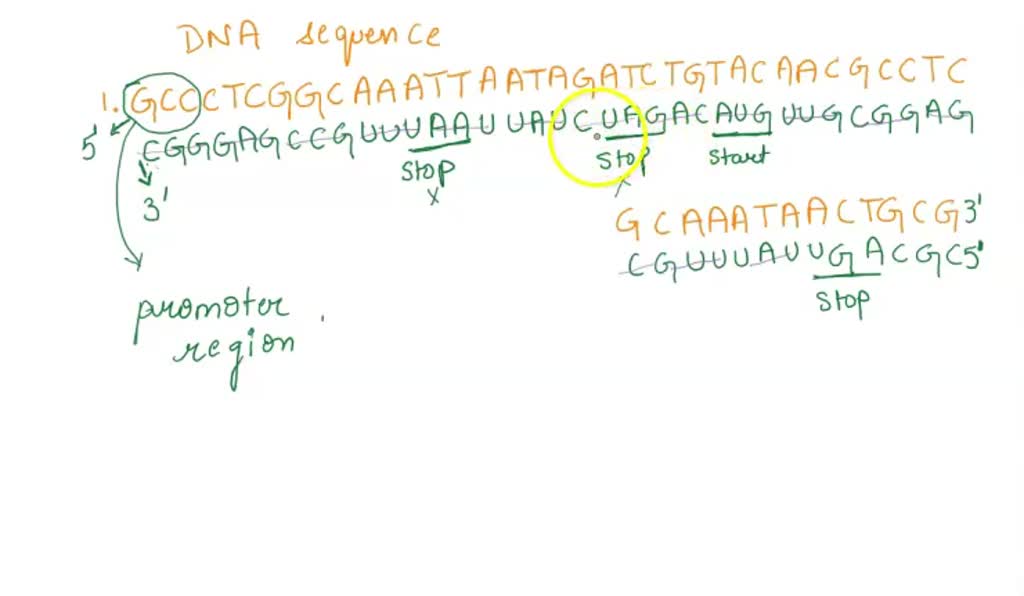 DNA sequence
1. GCCCTCGGGCAAATTAATAGATCTGTACAACGCCTC
5' CGGGAGCCGUUUAAUUAUCUAGACAUGUUGCGGAG
stop stop start
3' x x
GCAAATAACTGCG3'
CGUUUAUUGACGC5'
stop
promoter
region